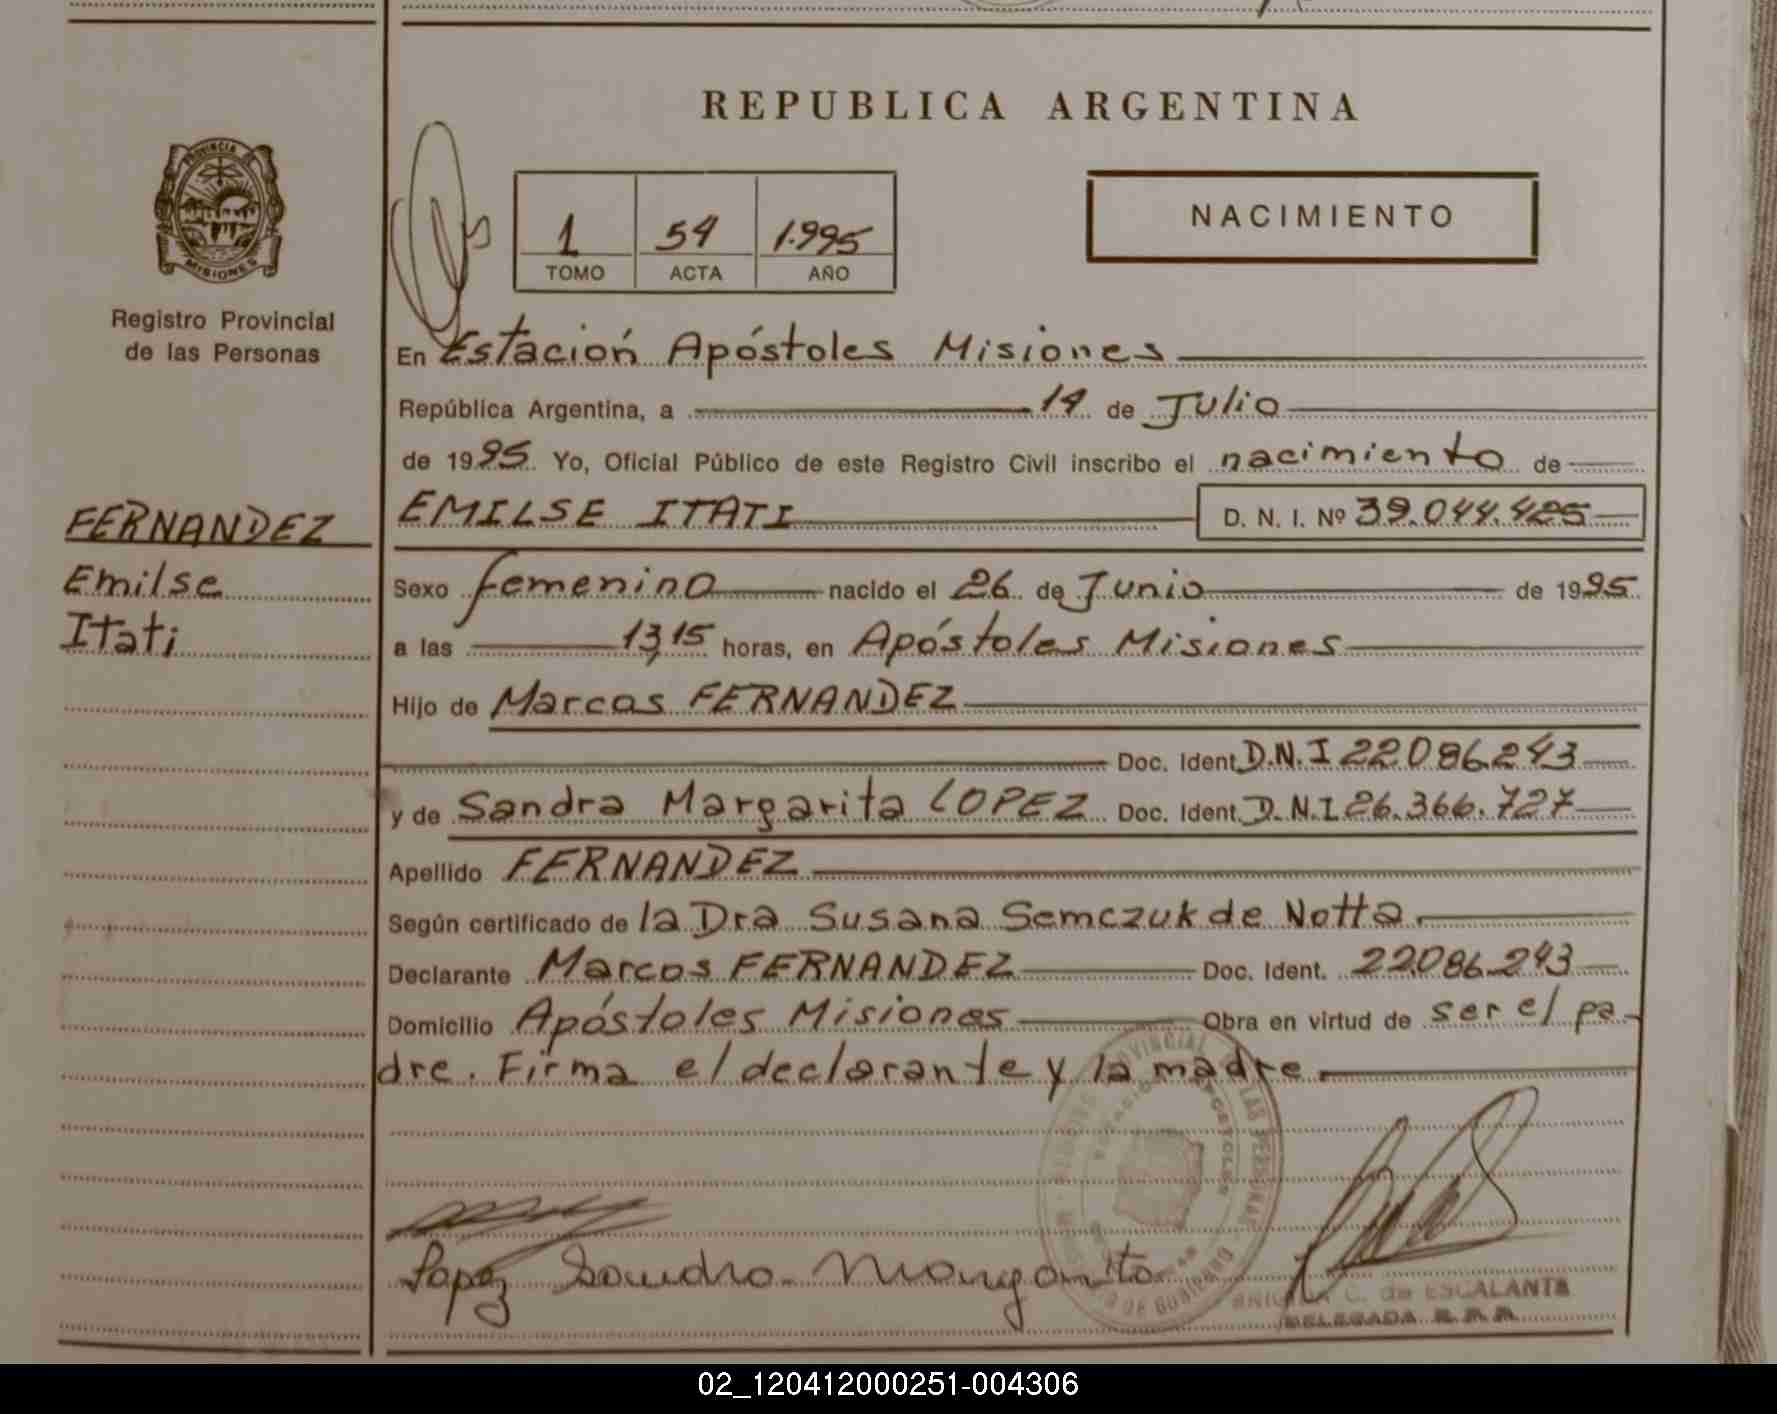 REPUBLICA ARGENTINA
PROVINCIA DE
MISIONES
Registro Provincial
de las Personas
1 54 1.995
TOMO ACTA AÑO
NACIMIENTO
En Estación Apóstoles Misiones
República Argentina, a 14 de Julio
de 1995. Yo, Oficial Público de este Registro Civil inscribo el nacimiento de
FERNANDEZ
Emilse
Itati
EMILSE ITATI D. N. I. Nº 39.044.425
Sexo femenino nacido el 26 de Junio de 1995
a las 13,15 horas, en Apóstoles Misiones
Hijo de Marcos FERNANDEZ
Doc. Ident. D.N.I 22086243
y de Sandra Margarita LOPEZ Doc. Ident. D.N.I 26.366.727
Apellido FERNANDEZ
Según certificado de la Dra Susana Semczuk de Notta.
Declarante Marcos FERNANDEZ Doc. Ident. 22.086.243
Domicilio Apóstoles Misiones Obra en virtud de ser el pa-
dre. Firma el declarante y la madre.
Lopez Sandra Margarita
C. de ESCALANTE
DELEGADA R.P.P.
02_120412000251-004306